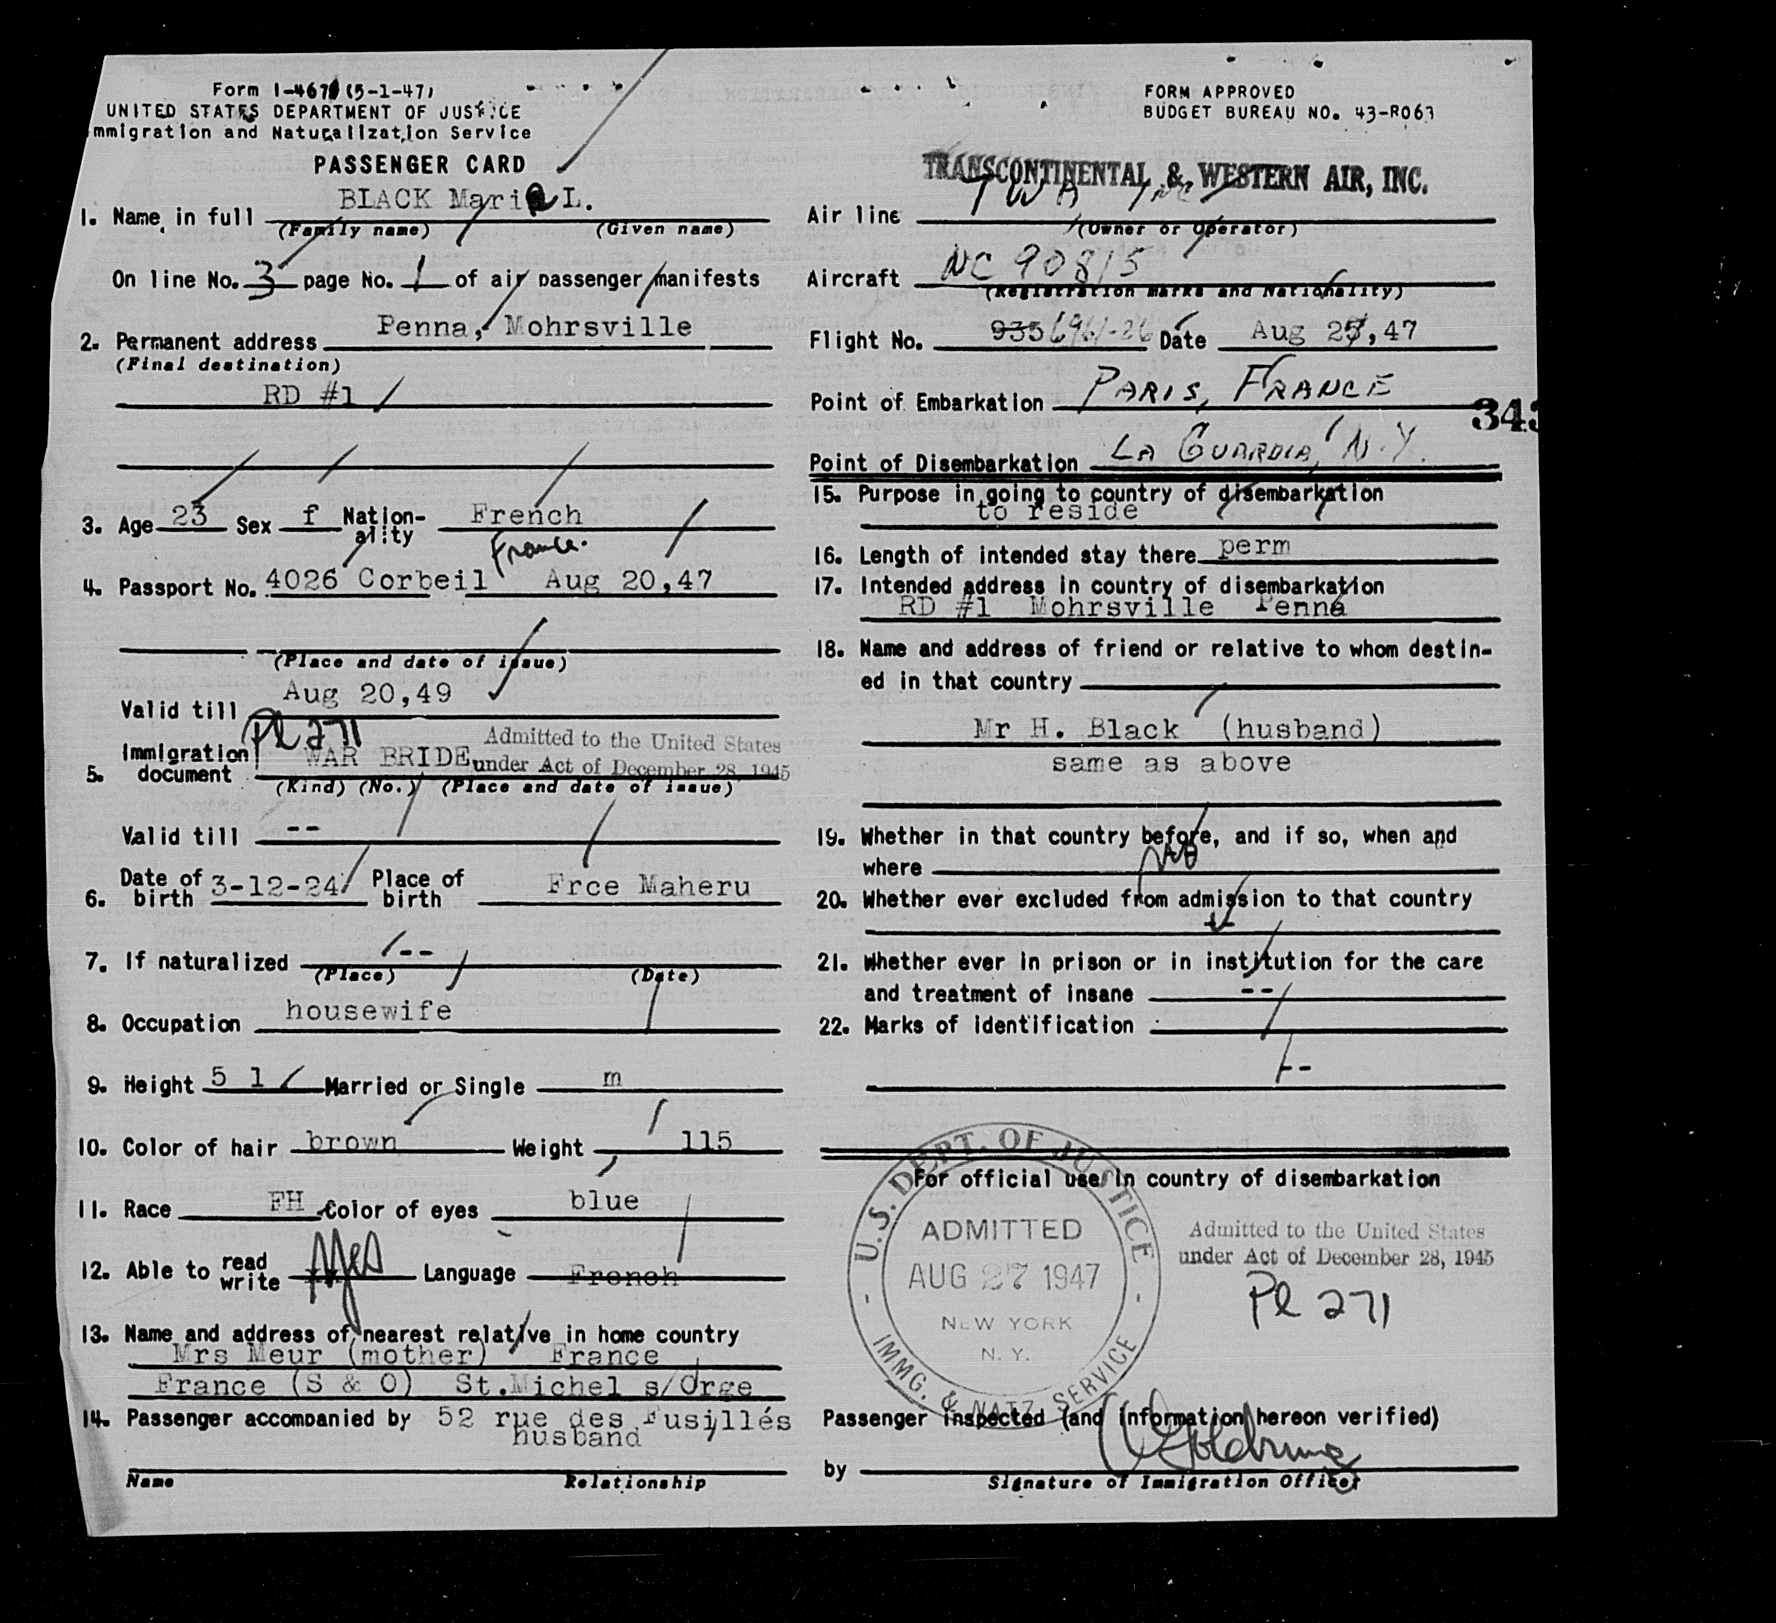 Form I-467 (5-1-47)
UNITED STATES DEPARTMENT OF JUSTICE
mmigration and Naturalization Service
PASSENGER CARD
FORM APPROVED
BUDGET BUREAU NO. 43-R063
1. Name in full BLACK Marie L.
(Family name) (Given name)
On line No. 3 page No. 1 of air passenger manifests
2. Permanent address Penna, Mohrsville
(Final destination)
RD #1
3. Age 23 Sex f Nation-ality French
France.
4. Passport No. 4026 Corbeil Aug 20,47
(Place and date of issue)
Valid till Aug 20,49
Pl 271
5. Immigration document WAR BRIDE Admitted to the United States
under Act of December 28, 1945
(Kind) (No.) (Place and date of issue)
Valid till --
6. Date of birth 3-12-24 Place of birth Frce Maheru
7. If naturalized --
(Place) (Date)
8. Occupation housewife
9. Height 5 1 Married or Single m
10. Color of hair brown Weight 115
11. Race FH Color of eyes blue
12. Able to read write yes Language French
13. Name and address of nearest relative in home country
Mrs Meur (mother) France
France (S & O) St.Michel s/Orge
14. Passenger accompanied by 52 rue des Fusillés
husband
Name Relationship
TRANSCONTINENTAL & WESTERN AIR, INC.
Air line TWA Inc
(Owner or Operator)
Aircraft NC 90815
(Registration marks and Nationality)
Flight No. 935 6961-26 Date Aug 25,47
Point of Embarkation PARIS, FRANCE
343
Point of Disembarkation LA GUARDIA, N.Y.
15. Purpose in going to country of disembarkation
to reside
16. Length of intended stay there perm
17. Intended address in country of disembarkation
RD #1 Mohrsville Penna
18. Name and address of friend or relative to whom destin-
ed in that country
Mr H. Black (husband)
same as above
19. Whether in that country before, and if so, when and
where no
20. Whether ever excluded from admission to that country
--
21. Whether ever in prison or in institution for the care
and treatment of insane --
22. Marks of identification
--
For official use in country of disembarkation
U.S. DEPT. OF JUSTICE
ADMITTED
AUG 27 1947
NEW YORK
N. Y.
IMMG. & NATZ. SERVICE
Admitted to the United States
under Act of December 28, 1945
Pl 271
Passenger inspected (and information hereon verified)
by
Signature of Immigration Officer